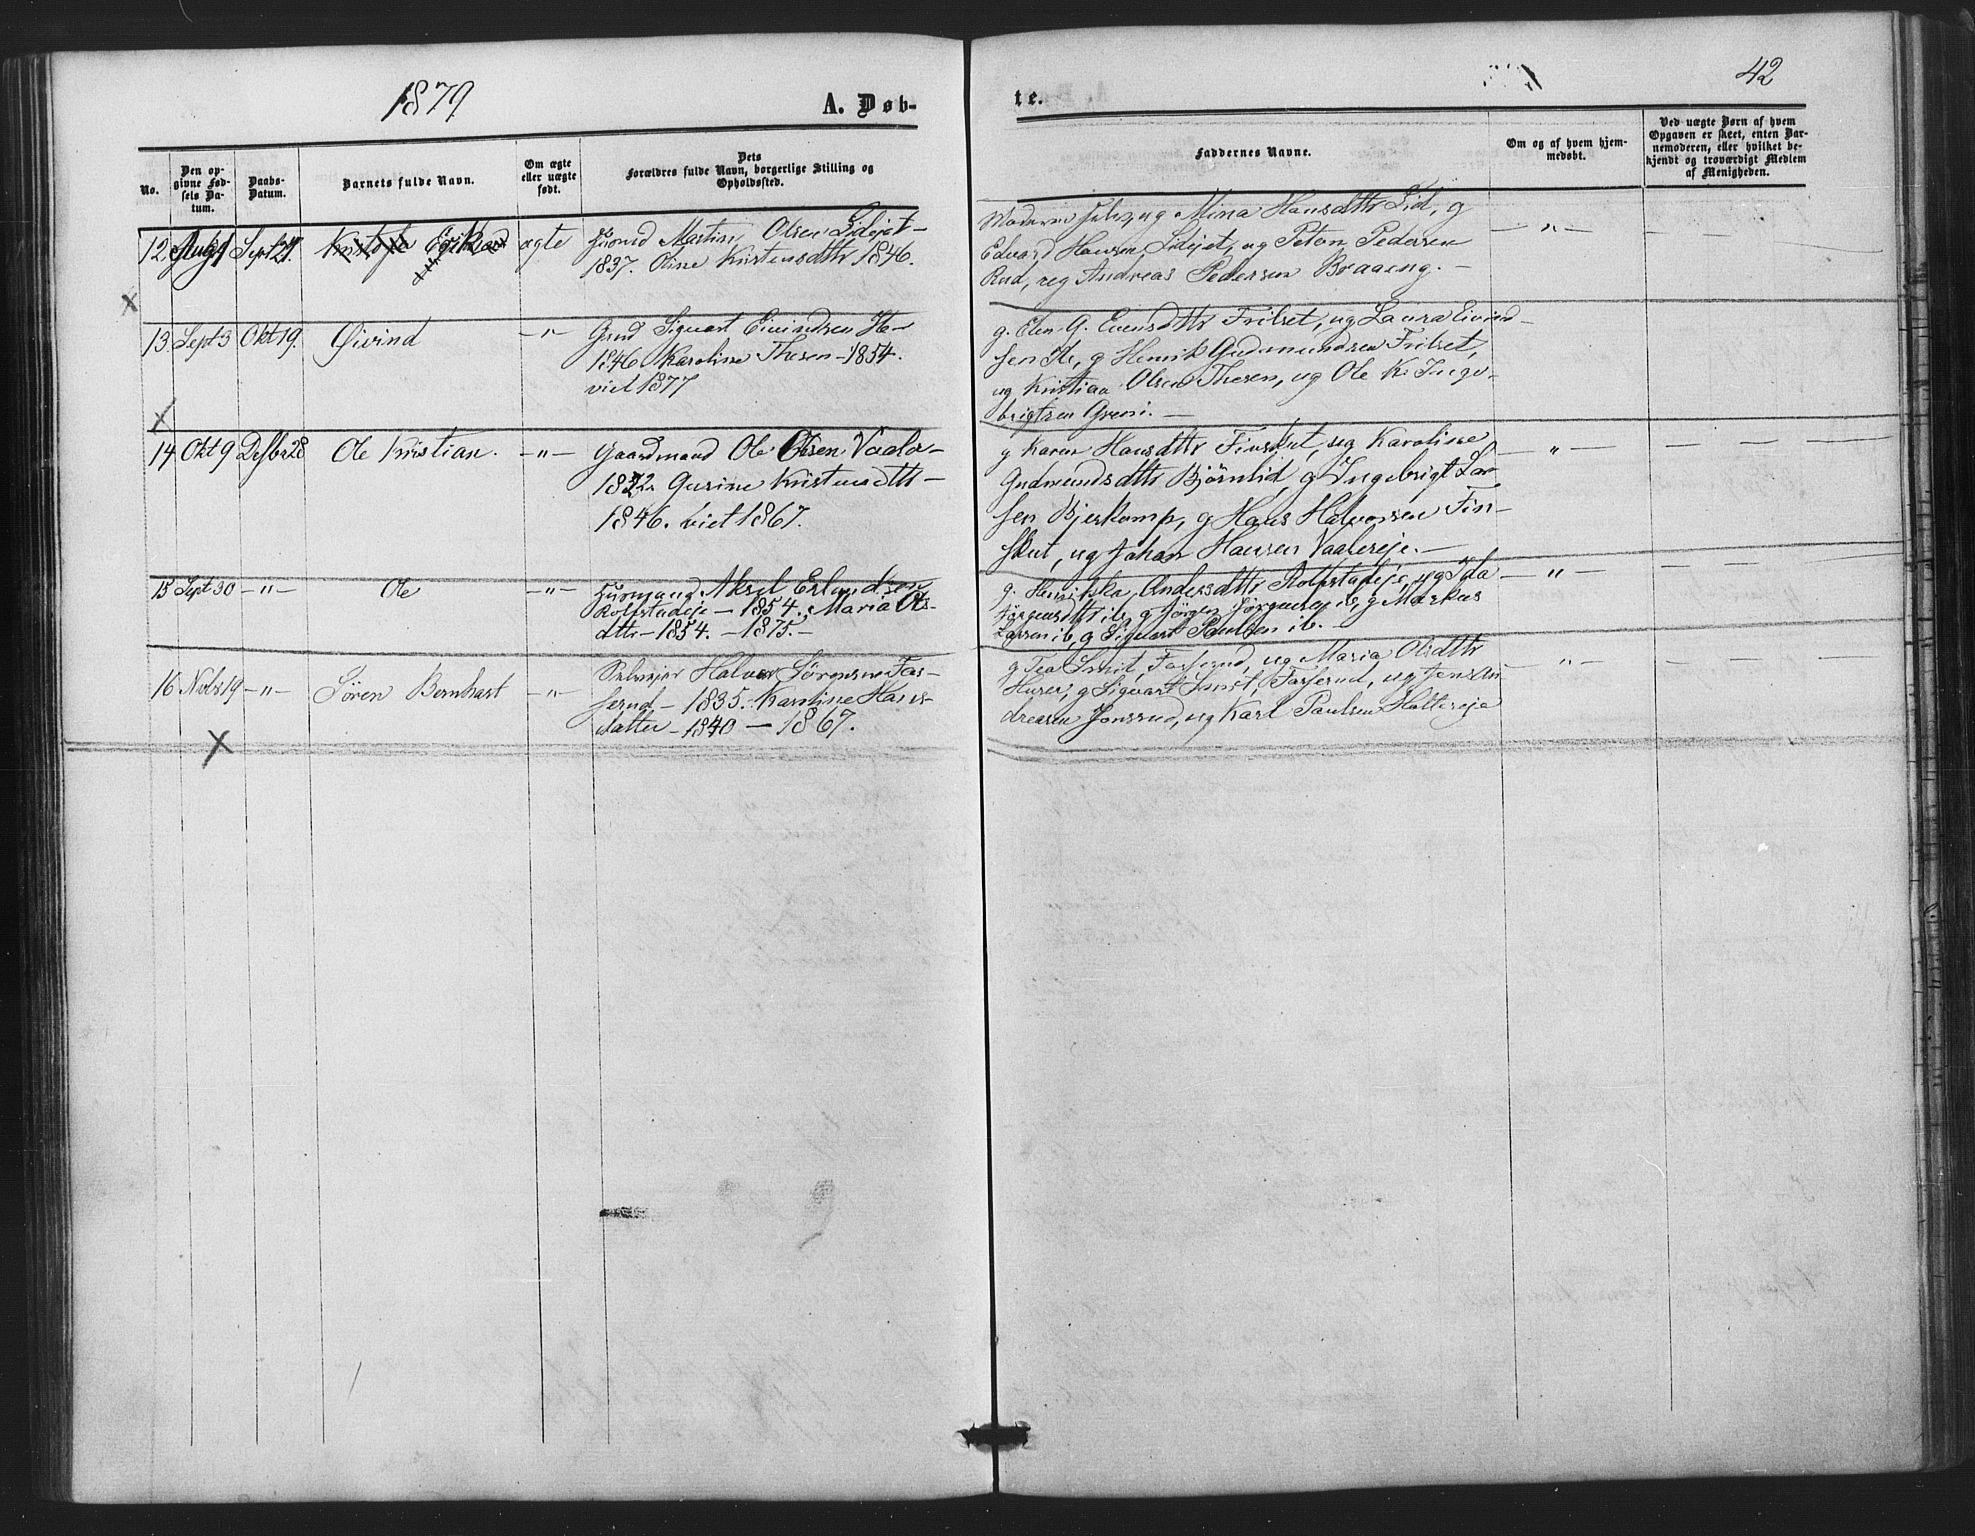 1879
A. Døb-
te.
42
No.
Den op-
givne Fød-
sels Da-
tum.
Daabs-
Datum.
Barnets fulde Navn.
Om ægte
eller uægte
født.
Dets
Forældres fulde Navn, borgerlige Stilling og
Opholdssted.
Faddernes Navne.
Om og af hvem hjem-
medøbt.
Ved uægte Børn af hvem
Opgaven er skeet, enten Bar-
nemoderen, eller hvilket be-
kjendt og troværdigt Medlem
af Menigheden.
12 Sept 21. ægte Martin Olsen Lidejet-
1837. Oline Kristensdttr 1846.
Moderen selv, ug Mina Hansdttr Lid, g
Edvard Hansen Lidejet, ug Peton Pedersen
Rud, ug Andreas Pedersen Braaeng. —
— " —
x
13 Sept 3 Okt 19. Øivind — " — Grmd Sigvart Eivindsen He-
1846 Karoline Thesen - 1854.
viet 1877
g. Elen G. Evensdttr Frilset, ug Laura Eivind-
sen He, g Henrik Gudmundsen Frilset,
ug Kristian Olsen Thesen, ug Ole K. Inge-
brigtsen Greni. —
x
14 Okt 9 Desbr 28 Ole Kristian. — " — Gaardmand Ole Olsen Vaaler-
Gurine Kristensdttr —
1846. viet 1867.
g Karen Hansdttr Finskut, ug Karoline
Gudmundsdttr Bjørnlid, g Ingebrigt Lar-
sen Bjerkomp, g Hans Halvorsen Fin-
skut, ug Johan Hansen Vaalereje. —
— " —
15 Sept 30 — " — Ole — " — Husmand Aksel Erlandsen
Rolfstadeje — 1854. Maria Ols-
dttr — 1854. — 1875. —
g. Henrikka Andersdttr Rolfstadeje, ug Ida
Jørgensdttr ib, g Jørgen Jørgensen ib, g Markus
Larsen ib, g Sigvart Paulsen ib.
— " —
16 Nvbr 19 — " — Søren Bernhart — " — Halvor Sørensen Fas-
serud — 1835. Karoline Hans-
datter — 1840 — 1867.
g Tea Smit, Fasserud, ug Maria Olsdttr
Hurer, g Sigvart Smit, Fasserud, ug Jens An-
dreasen Jonsrud, ug Karl Paulsen Holtereje
— " —
x